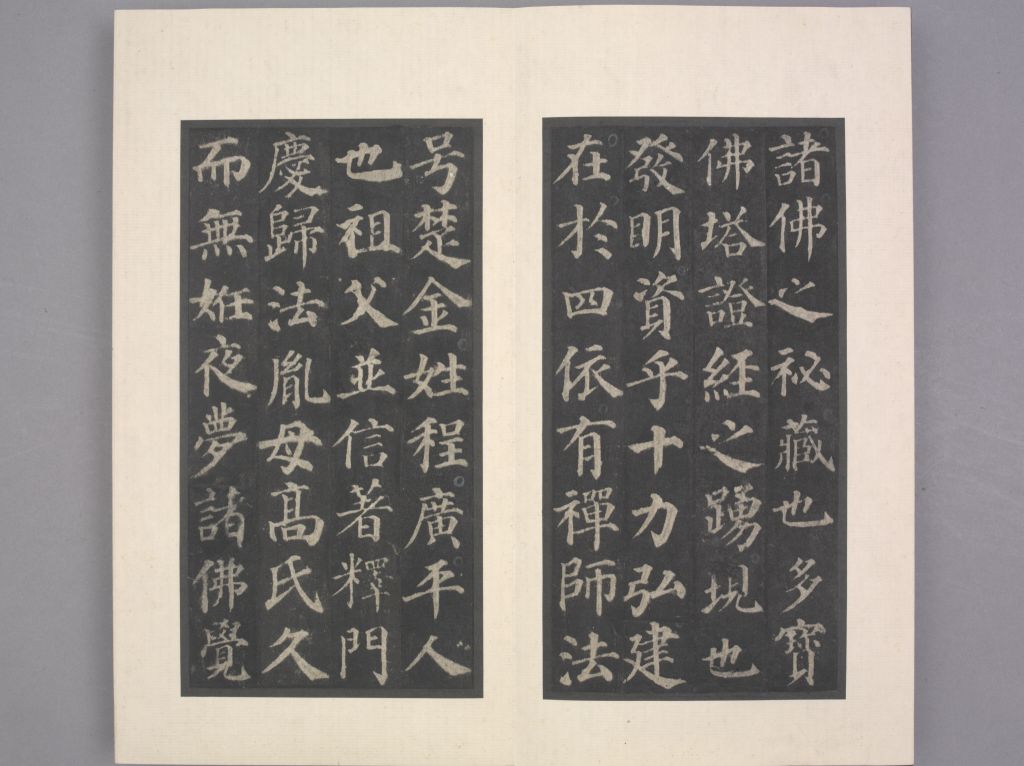 諸佛之祕藏也多寶
佛塔證經之踴現也
發明資乎十力弘建
在於四依有禪師法
号楚金姓程廣平人
也祖父並信著釋門
慶歸法胤母髙氏久
而無姙夜夢諸佛覺